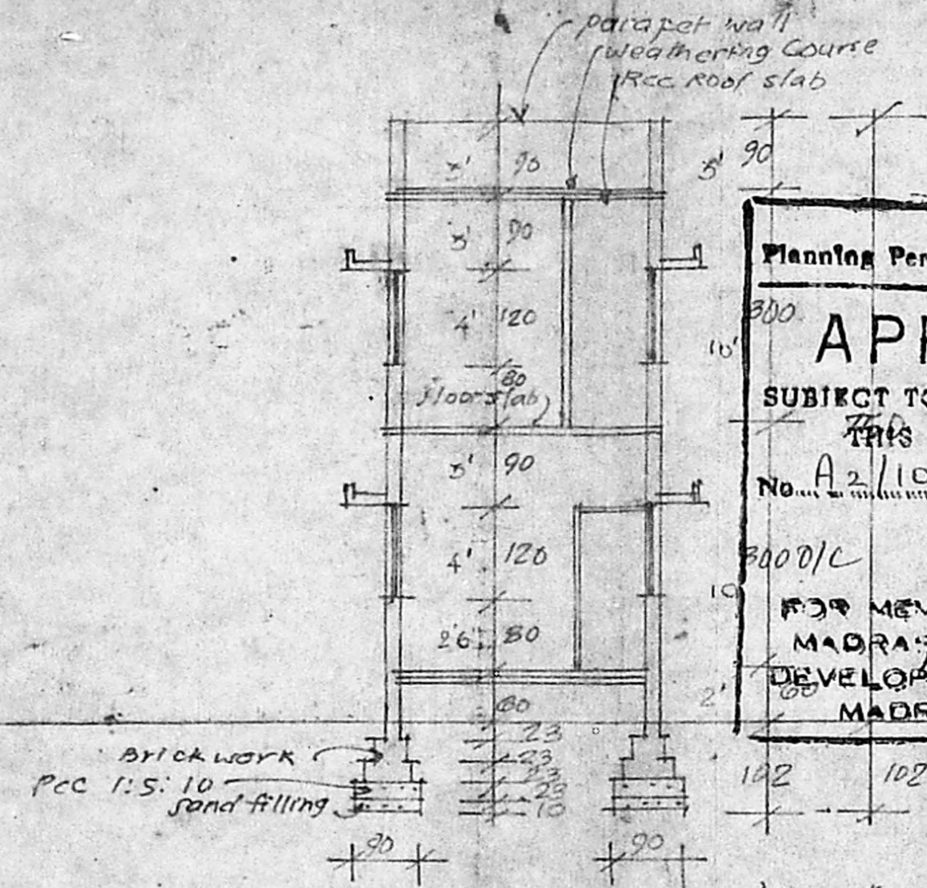 parapet wall
weathering Course
Rcc Roof slab
3' 90
3' 90
3' 90
4' 120
80
floor slab
3' 90
4' 120
2'6" 80
60
23
23
23
23
10
Brick work
Pcc 1:5:10
sand filling
90
90
300
10'
300 O/C
10'
2' 60
102
102
Planning Per
AP
SUBJECT TO
THIS
No. A2/10
FOR MEM
MADRA
DEVELOP
MADR